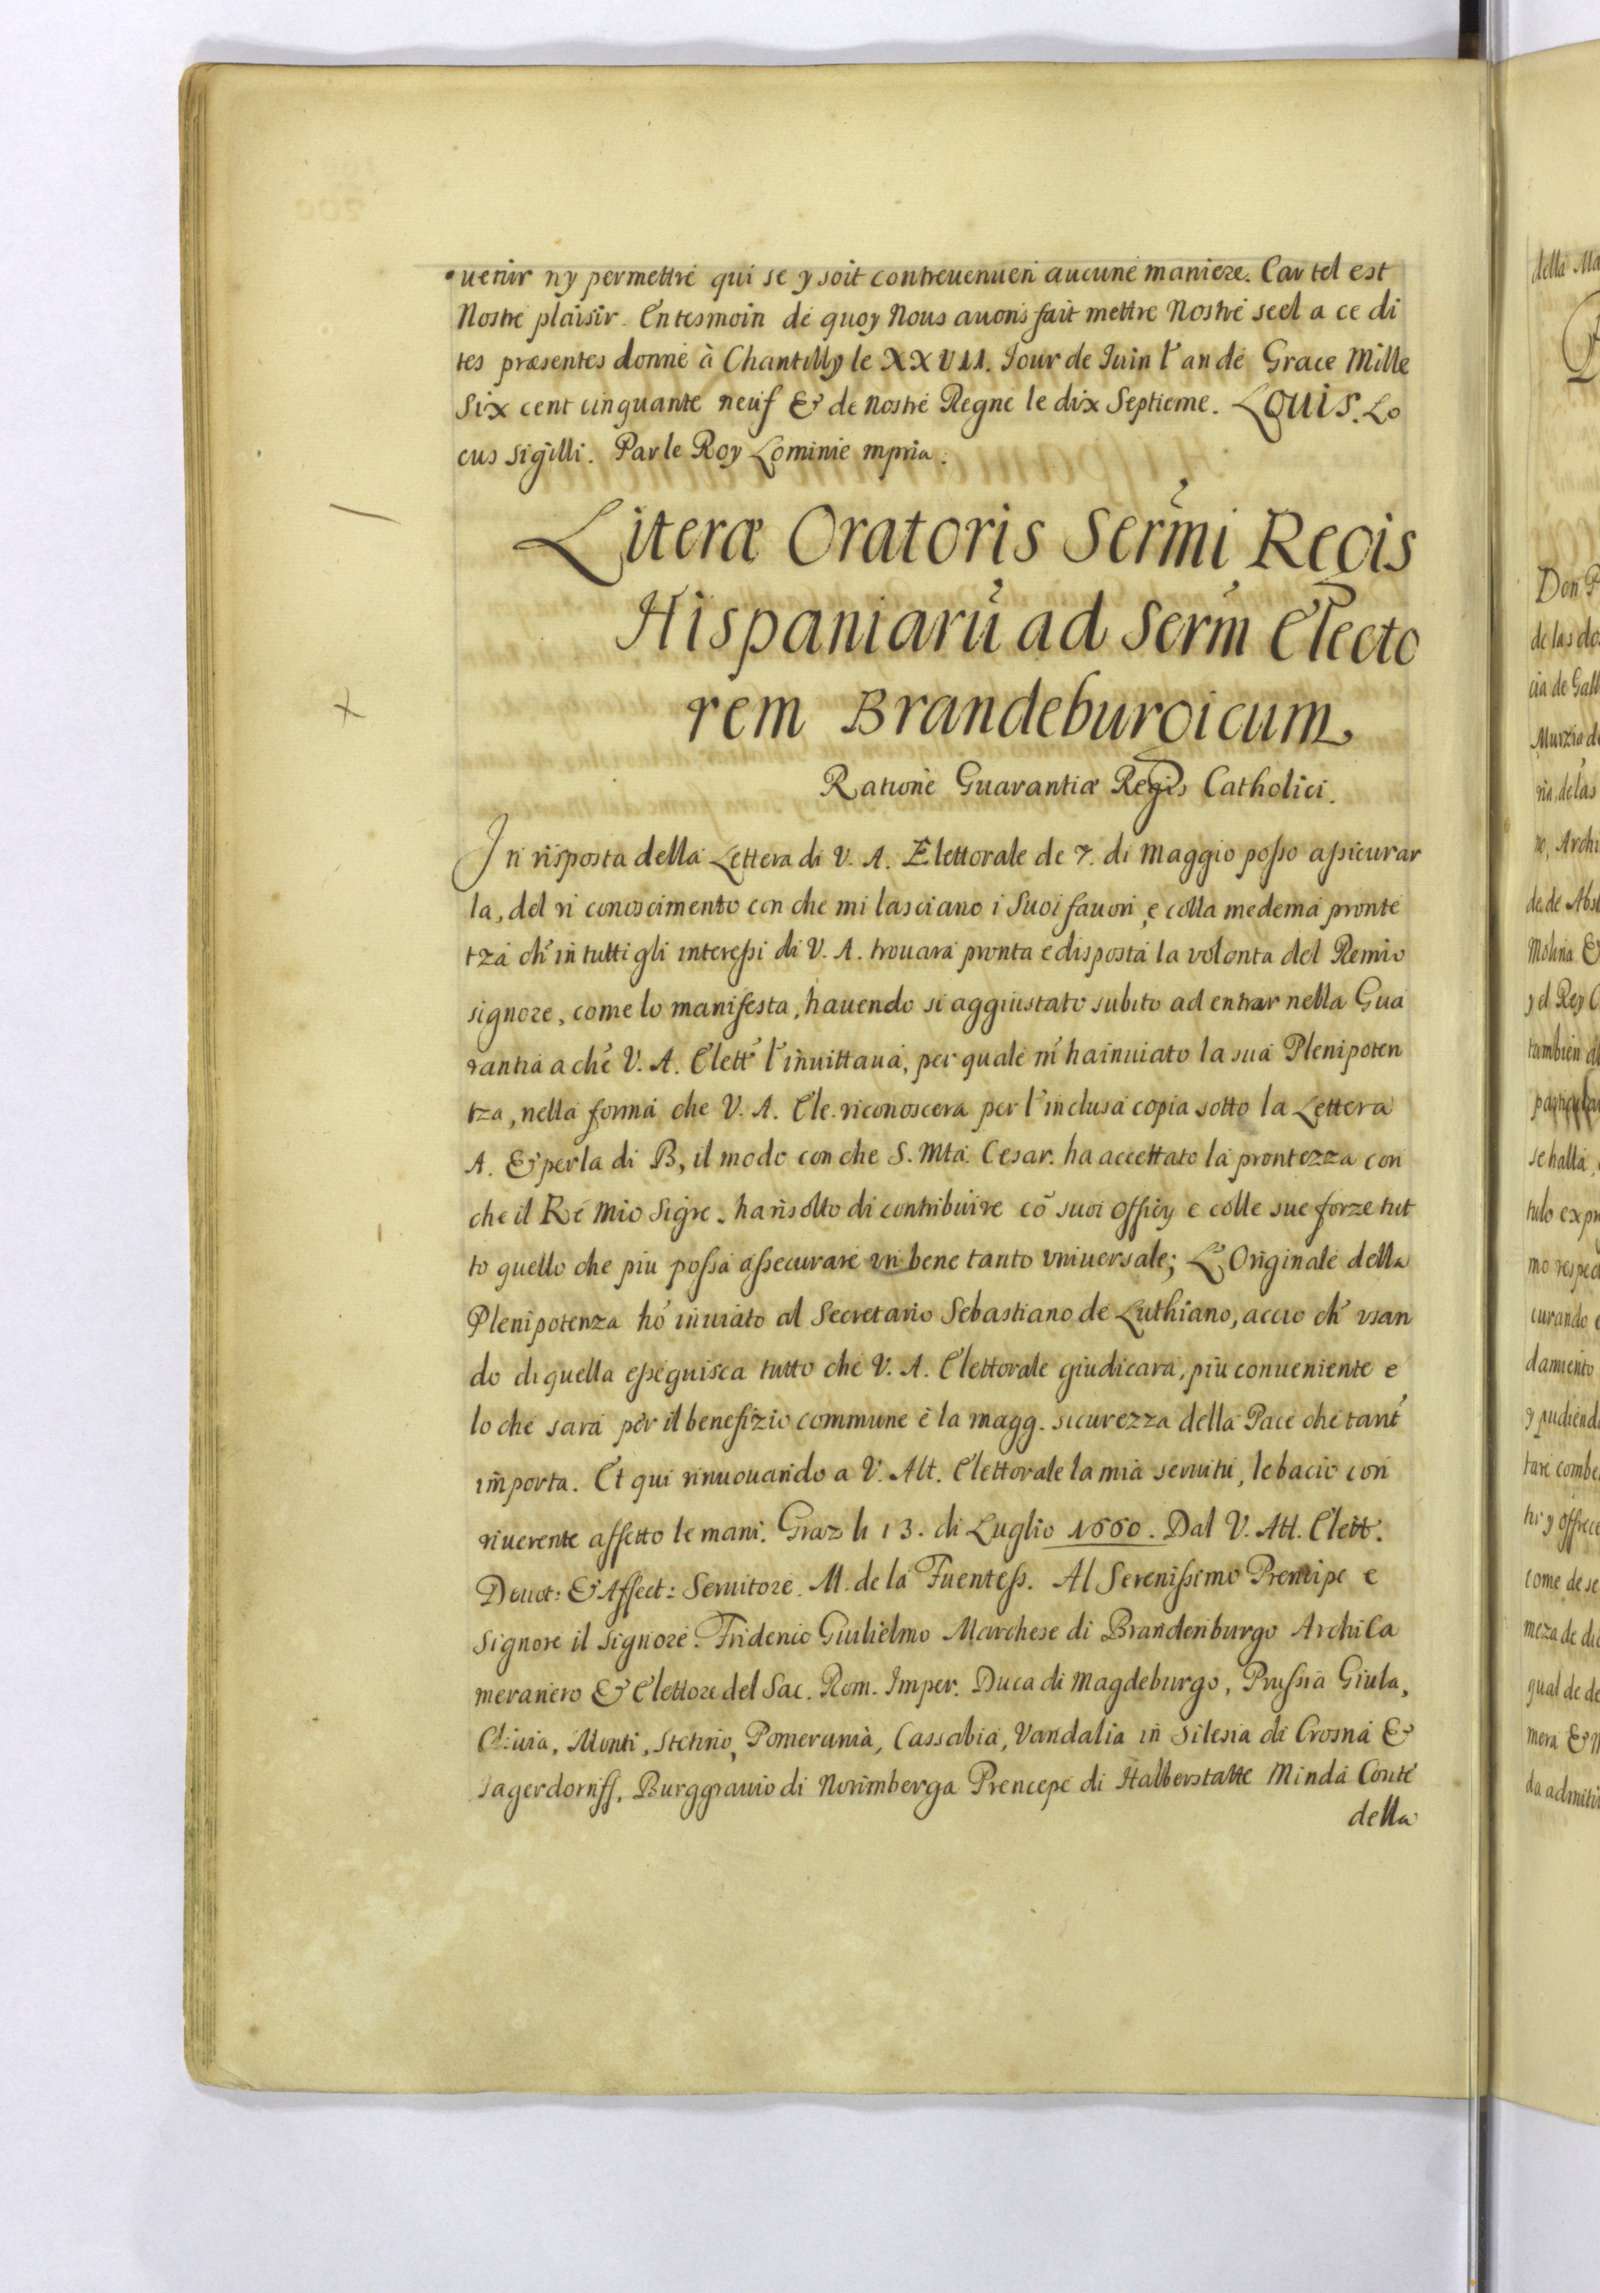 uenir ny permettre qui se y soit contreuenueñ aucune maniere. Car tel est
Nostre plaisir. En tesmoin de quoy Nous auons fait mettre Nostre seel a ce di
tes præsentes donne à Chantilly le XXVII. Jour de Juin l'an de Grace Mille
Six cent cinquante neuf & de nostre Regne le dix Septieme. LOUIS. Lo
cus sigilli. Par le Roy Lominie mpria.
Literæ Oratoris Serm̃i Regis
Hispaniarũ ad Serm̃ Electo
rem Brandeburgicum
Ratione Guarantiæ Regis Catholici.
In risposta della Lettera di V. A. Elettorale de 7. di Maggio posso assicurar
la, del ri conoscimento con che mi lasciano i Suoi fauori, e colla medema pronte
tza ch' in tutti gli interessi di V. A. trouara pronta e disposta la volonta del Remio
signore, come lo manifesta, hauendo si aggiustato subito ad entrar nella Gua
rantia a che V. A. Elett' l'inuittaua, per quale m' hainuiato la sua Plenipoten
tza, nella forma che V. A. Ele. riconoscera per l'inclusa copia sotto la Lettera
A. & perla di B, il modo con che S. Mta. Cesar. ha accettato la prontezza con
che il Ré Mio Sigre. ha risolto di contribuire cõ suoi officÿ e colle sue forze tut
to quello che piu possa assecurare un bene tanto vniuersale; L' Originale della
Plenipotenza ho inuiato al Secretario Sebastiano de Luthiano, accio ch' vsan
do di quella esseguisca tutto che V. A. Elettorale giudicara, piu conueniente e
lo che sara per il benefizio commune e la magg. sicurezza della Pace che tant'
importa. Et qui rinuouando a V. Alt. Elettorale la mia seruitu, le bacio con
riuerente affetto le mani. Graz li 13. di Luglio 1660. Dal V. Alt. Elett.
Deuot: & Affect: Seruitore. M. de la Fuentess. Al Serenissimo Prencipe e
Signore il Signore. Friderico Guilielmo Marchese di Brandenburgo Archica
merariero & Elettore del Sac. Rom. Imper. Duca di Magdeburgo, Prussia Giula,
Cliuia, Monti, Stetino, Pomerania, Cassabia, Vandalia in Silesia di Crosna &
Jagerdorniff, Burggrauio di Norimberga Prencepe di Halberstatte Minda Conte
della